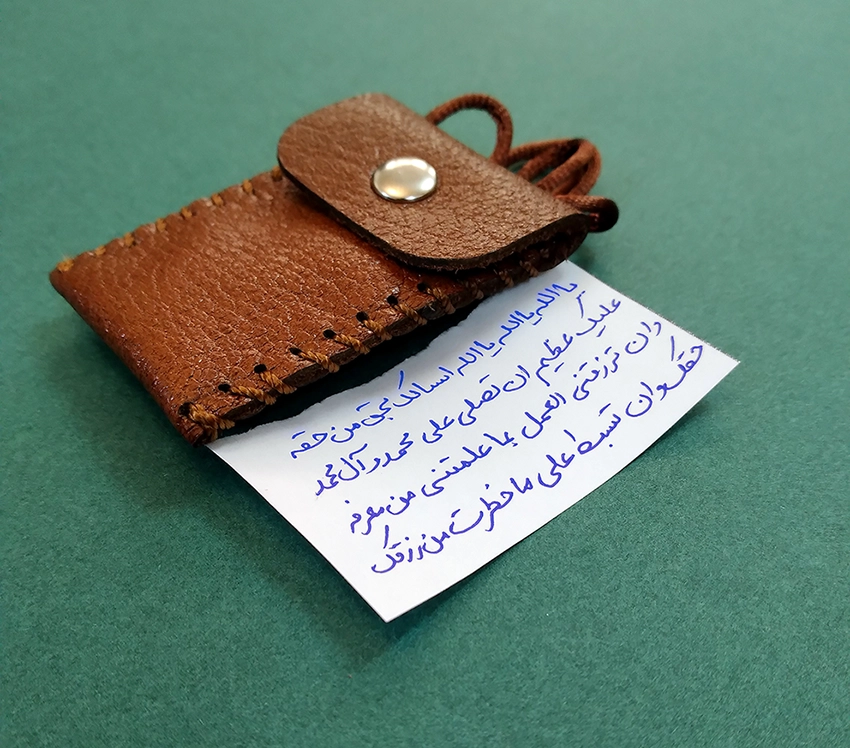 یا الله یا الله یا الله اسالک بحق من حقه
علیک عظیم ان تصلی علی محمد و آل محمد
وان ترزقنی العمل بما علمتنی من معرفه
حقک وان تبسط علی ما حظرت من رزقک